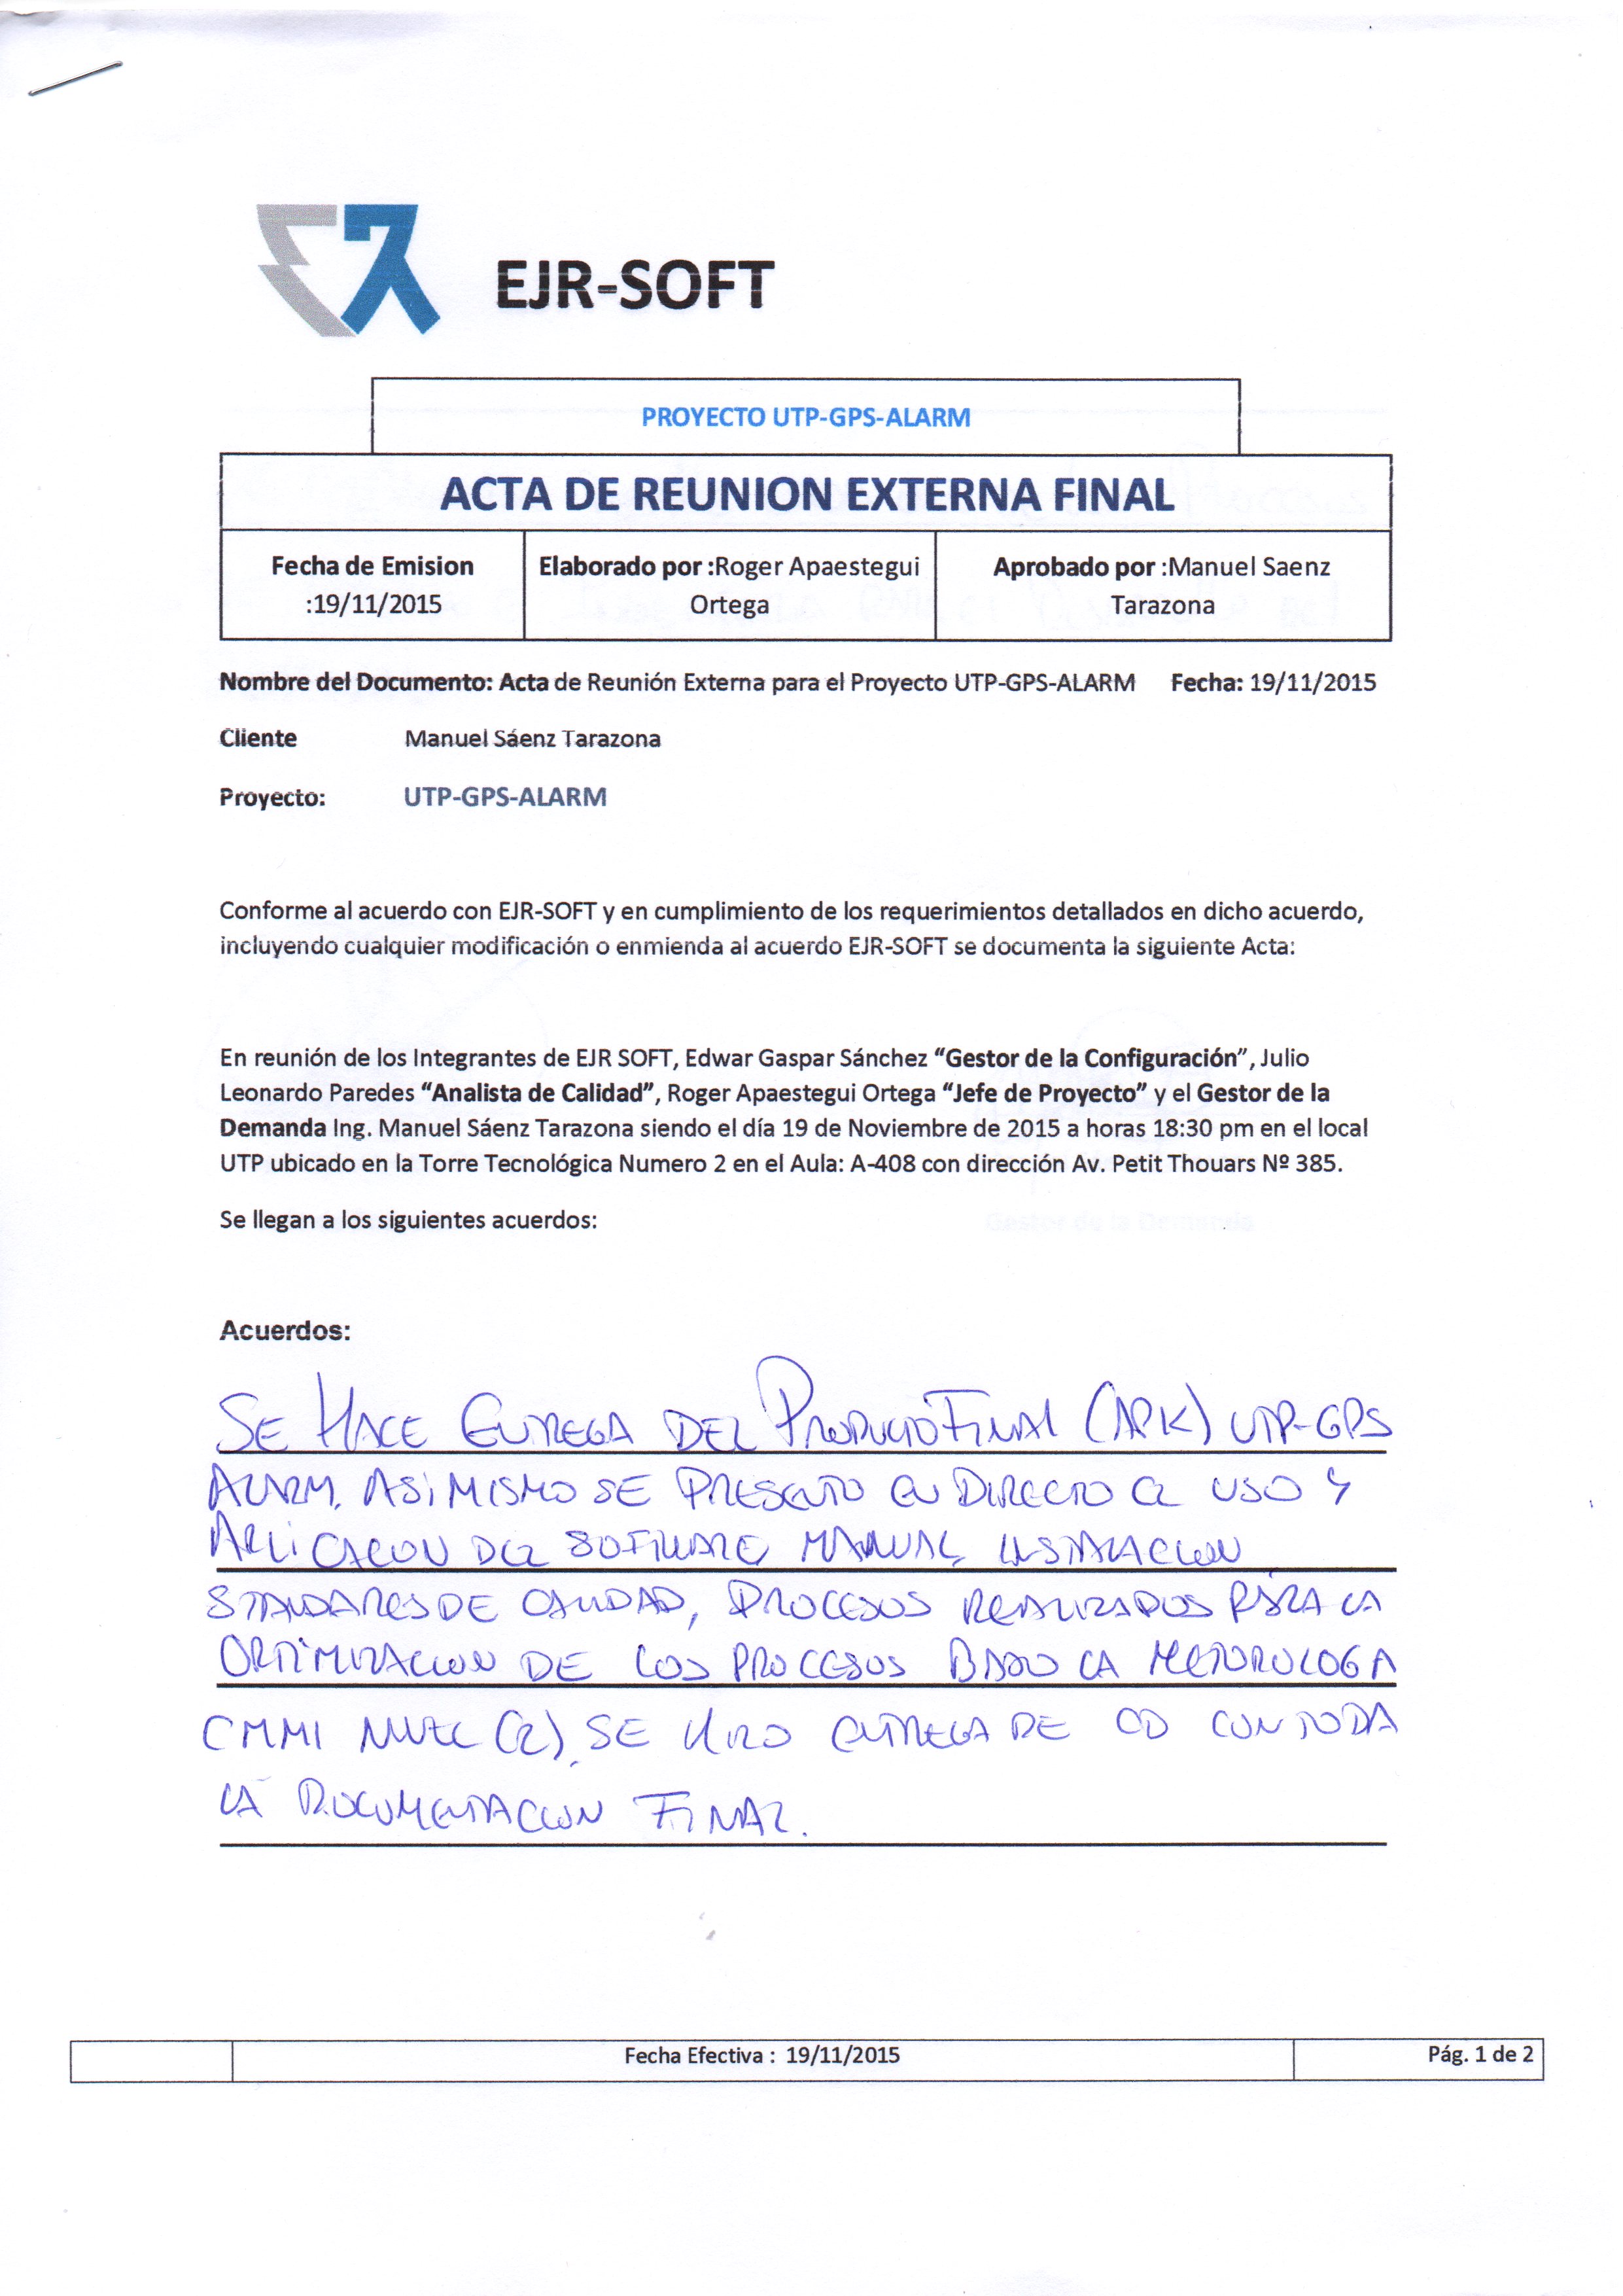 EJR-SOFT
PROYECTO UTP-GPS-ALARM
ACTA DE REUNION EXTERNA FINAL
Fecha de Emision :19/11/2015
Elaborado por :Roger Apaestegui Ortega
Aprobado por :Manuel Saenz Tarazona
Nombre del Documento: Acta de Reunión Externa para el Proyecto UTP-GPS-ALARM Fecha: 19/11/2015
Cliente Manuel Sáenz Tarazona
Proyecto: UTP-GPS-ALARM
Conforme al acuerdo con EJR-SOFT y en cumplimiento de los requerimientos detallados en dicho acuerdo,
incluyendo cualquier modificación o enmienda al acuerdo EJR-SOFT se documenta la siguiente Acta:
En reunión de los Integrantes de EJR SOFT, Edwar Gaspar Sánchez “Gestor de la Configuración”, Julio
Leonardo Paredes “Analista de Calidad”, Roger Apaestegui Ortega “Jefe de Proyecto” y el Gestor de la
Demanda Ing. Manuel Sáenz Tarazona siendo el día 19 de Noviembre de 2015 a horas 18:30 pm en el local
UTP ubicado en la Torre Tecnológica Numero 2 en el Aula: A-408 con dirección Av. Petit Thouars Nº 385.
Se llegan a los siguientes acuerdos:
Acuerdos:
SE HACE ENTREGA DEL PRODUCTO FINAL (APK) UTP-GPS
ALARM. ASIMISMO SE PRESENTO EN DIRECTO EL USO Y
APLICACION DEL SOFTWARE, MANUAL, INSTALACION
STANDARES DE CALIDAD, PROCESOS REALIZADOS PARA LA
OPTIMIZACION DE LOS PROCESOS BAJO LA METODOLOGA
CMMI NIVEL (2). SE HIZO ENTREGA DE CD CON TODA
LA DOCUMENTACION FINAL.
Fecha Efectiva : 19/11/2015
Pág. 1 de 2